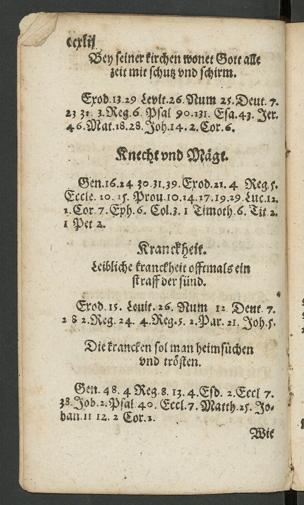 ccxlij
Bey seiner kirchen wonet Gott alle
zeit mit schutz vnd schirm.
Exod. 13. 29 Levit. 26. Num 25. Deut. 7.
23 31. 3. Reg. 6. Psal 90. 131. Esa. 43. Jer.
46. Mat. 18. 28. Joh. 14. 2. Cor. 6.
Knecht vnd Mägt.
Gen. 16. 24 30. 31. 39. Exod. 21. 4 Reg 5.
Eccle. 10. 15. Prou. 10. 14. 17. 19. 29. Luc. 12.
1. Cor. 7. Eph. 6. Col. 3. 1 Timoth. 6. Tit 2.
1 Pet 2.
Kranckheit.
Leibliche kranckheit offtmals ein
straff der sünd.
Exod. 15. Leuit. 26. Num 12 Deut. 7.
2 8 2. Reg. 24. 4. Reg. 5. 2. Par. 21. Joh. 5.
Die krancken sol man heimsůchen
vnd trösten.
Gen. 48. 4 Reg. 8. 13. 4. Esd. 2. Eccl 7.
38. Job. 2. Psal 40. Eccl. 7. Matth. 25. Jo-
han. 11 12. 2 Cor. 1.
Wie